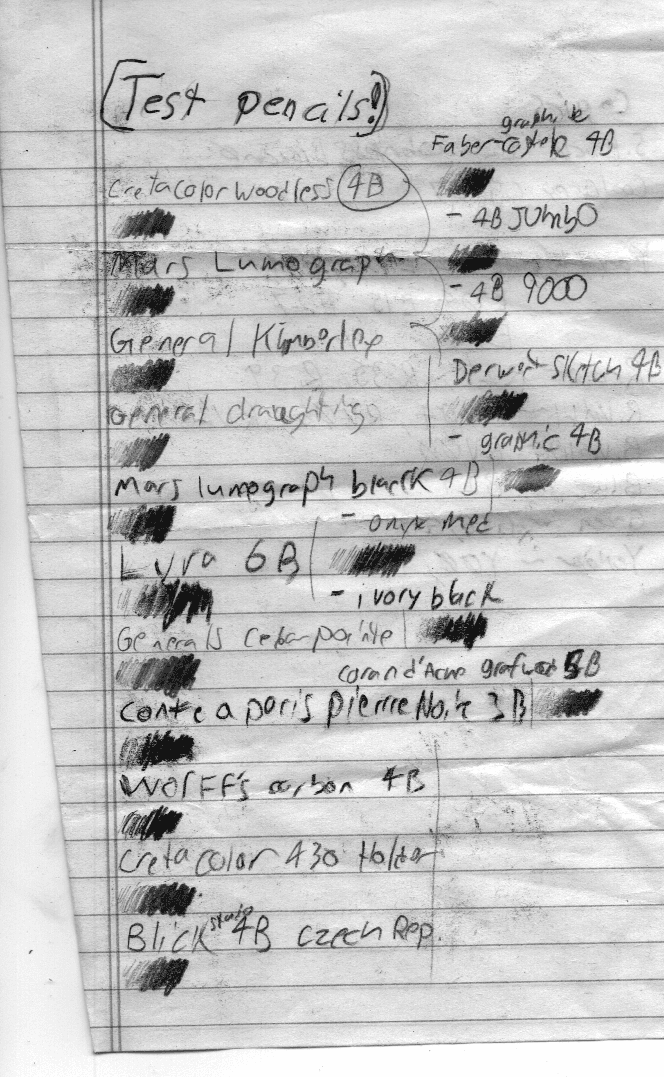 (Test pencils!)
graphite
Faber-Castele 4B
Cretacolor woodless 4B
- 4B JUmbO
Mars Lumograph
- 4B 9000
General Kimberley
Derwent Sketch 4B
General draughting
- graphic 4B
Mars lumograph black 4B
- onyx med
Lyra 6B
- ivory black
Generals
caran d'Ache grafwood 5B
conte a paris pierre Noire 3B
WolFF's carbon 4B
Cretacolor 430 Holder
Blick studio 4B czech Rep.